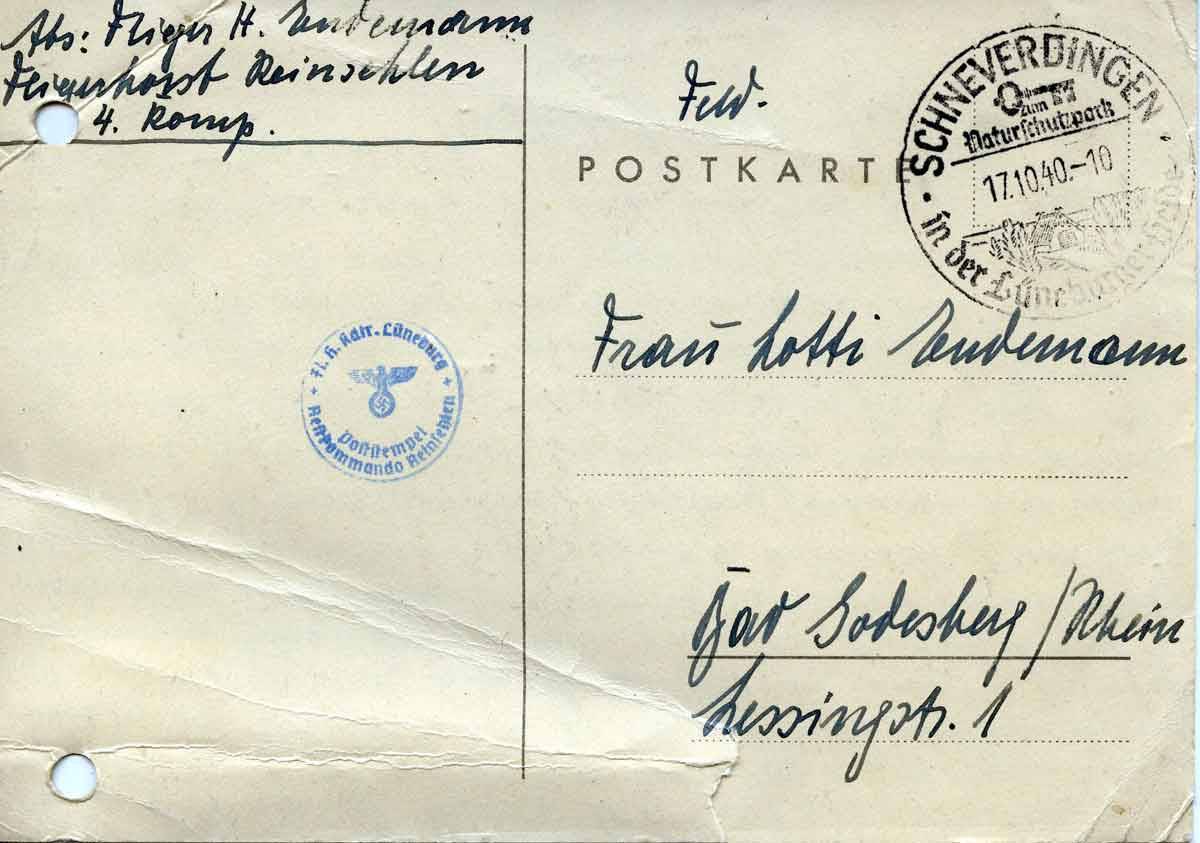 Abs: Flieger H. Endemann
Fliegerhorst Reinsehlen
4. Komp.
Feld-
POSTKARTE
SCHNEVERDINGEN
zum
Naturschutzpark
17.10.40.-10
in der Lüneburger Heide
Fl. H. Kdtr. Lüneburg
Poststempel
Restkommando Reinsehlen
Frau Lotti Endemann
Bad Godesberg / Rhein
Lessingstr. 1